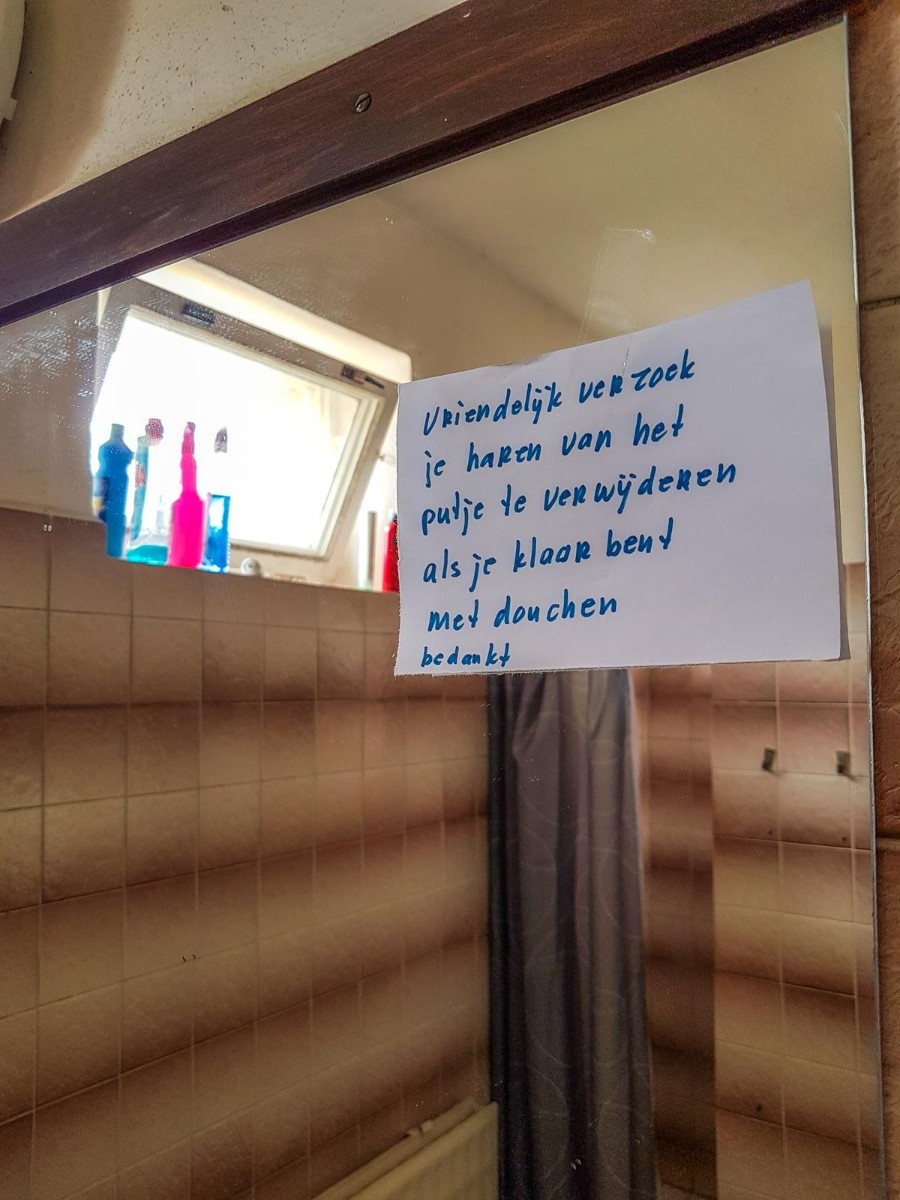 vriendelijk verzoek
je haren van het
putje te verwijderen
als je klaar bent
met douchen
bedankt